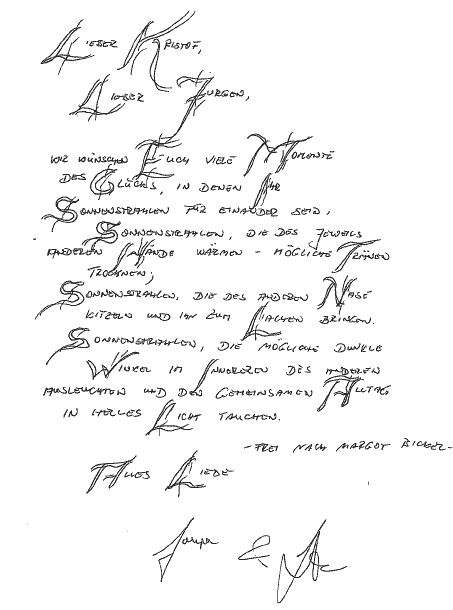 Lieber Kristof,
Lieber Jürgen,
wir wünschen Euch viele Momente
des Glücks, in denen Ihr
Sonnenstrahlen für einander seid,
Sonnenstrahlen, die des jeweils
anderen Hände wärmen - mögliche Tränen
trocknen;
Sonnenstrahlen, die des anderen Nase
kitzeln und ihn zum Lachen bringen.
Sonnenstrahlen, die mögliche dunkle
Winkel im Inneren des anderen
ausleuchten und den gemeinsamen Alltag
in helles Licht tauchen.
- frei nach Margot Bickel -
Alles Liebe
&